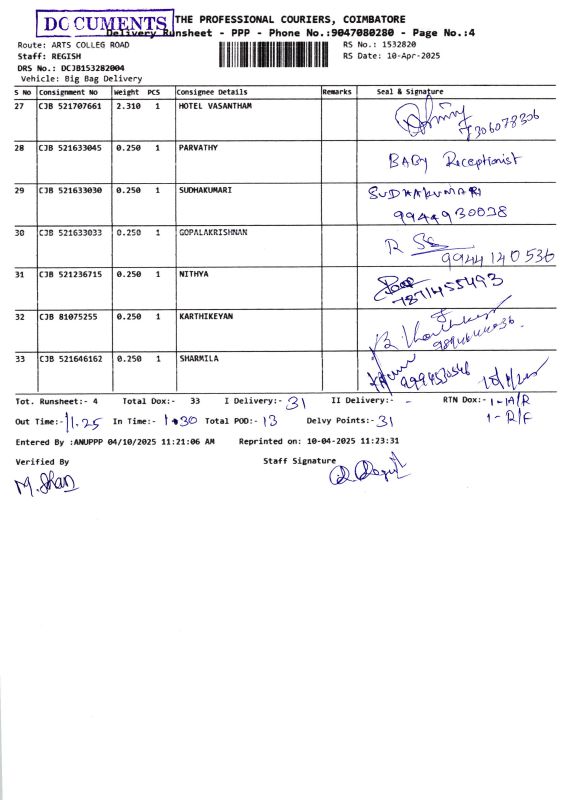 DOCUMENTS
THE PROFESSIONAL COURIERS, COIMBATORE
Delivery Runsheet - PPP - Phone No.:9047080280 - Page No.:4
Route: ARTS COLLEG ROAD
RS No.: 1532820
Staff: REGISH
RS Date: 10-Apr-2025
DRS No.: DCJB153282004
Vehicle: Big Bag Delivery
S No Consignment No Weight PCS Consignee Details Remarks Seal & Signature
27 CJB 521707661 2.310 1 HOTEL VASANTHAM
7306078306
28 CJB 521633045 0.250 1 PARVATHY
BABy Receptionist
29 CJB 521633030 0.250 1 SUDHAKUMARI SUDHAKUMARI
9944930028
30 CJB 521633033 0.250 1 GOPALAKRISHNAN
9944140536
31 CJB 521236715 0.250 1 NITHYA
7871455493
32 CJB 81075255 0.250 1 KARTHIKEYAN
33 CJB 521646162 0.250 1 SHARMILA
Tot. Runsheet:- 4 Total Dox:- 33 I Delivery:- 31 II Delivery:- - RTN Dox:- 1-IA/R
1-R/F
Out Time:- 11.25 In Time:- 1.30 Total POD:- 13 Delvy Points:- 31
Entered By :ANUPPP 04/10/2025 11:21:06 AM Reprinted on: 10-04-2025 11:23:31
Verified By Staff Signature